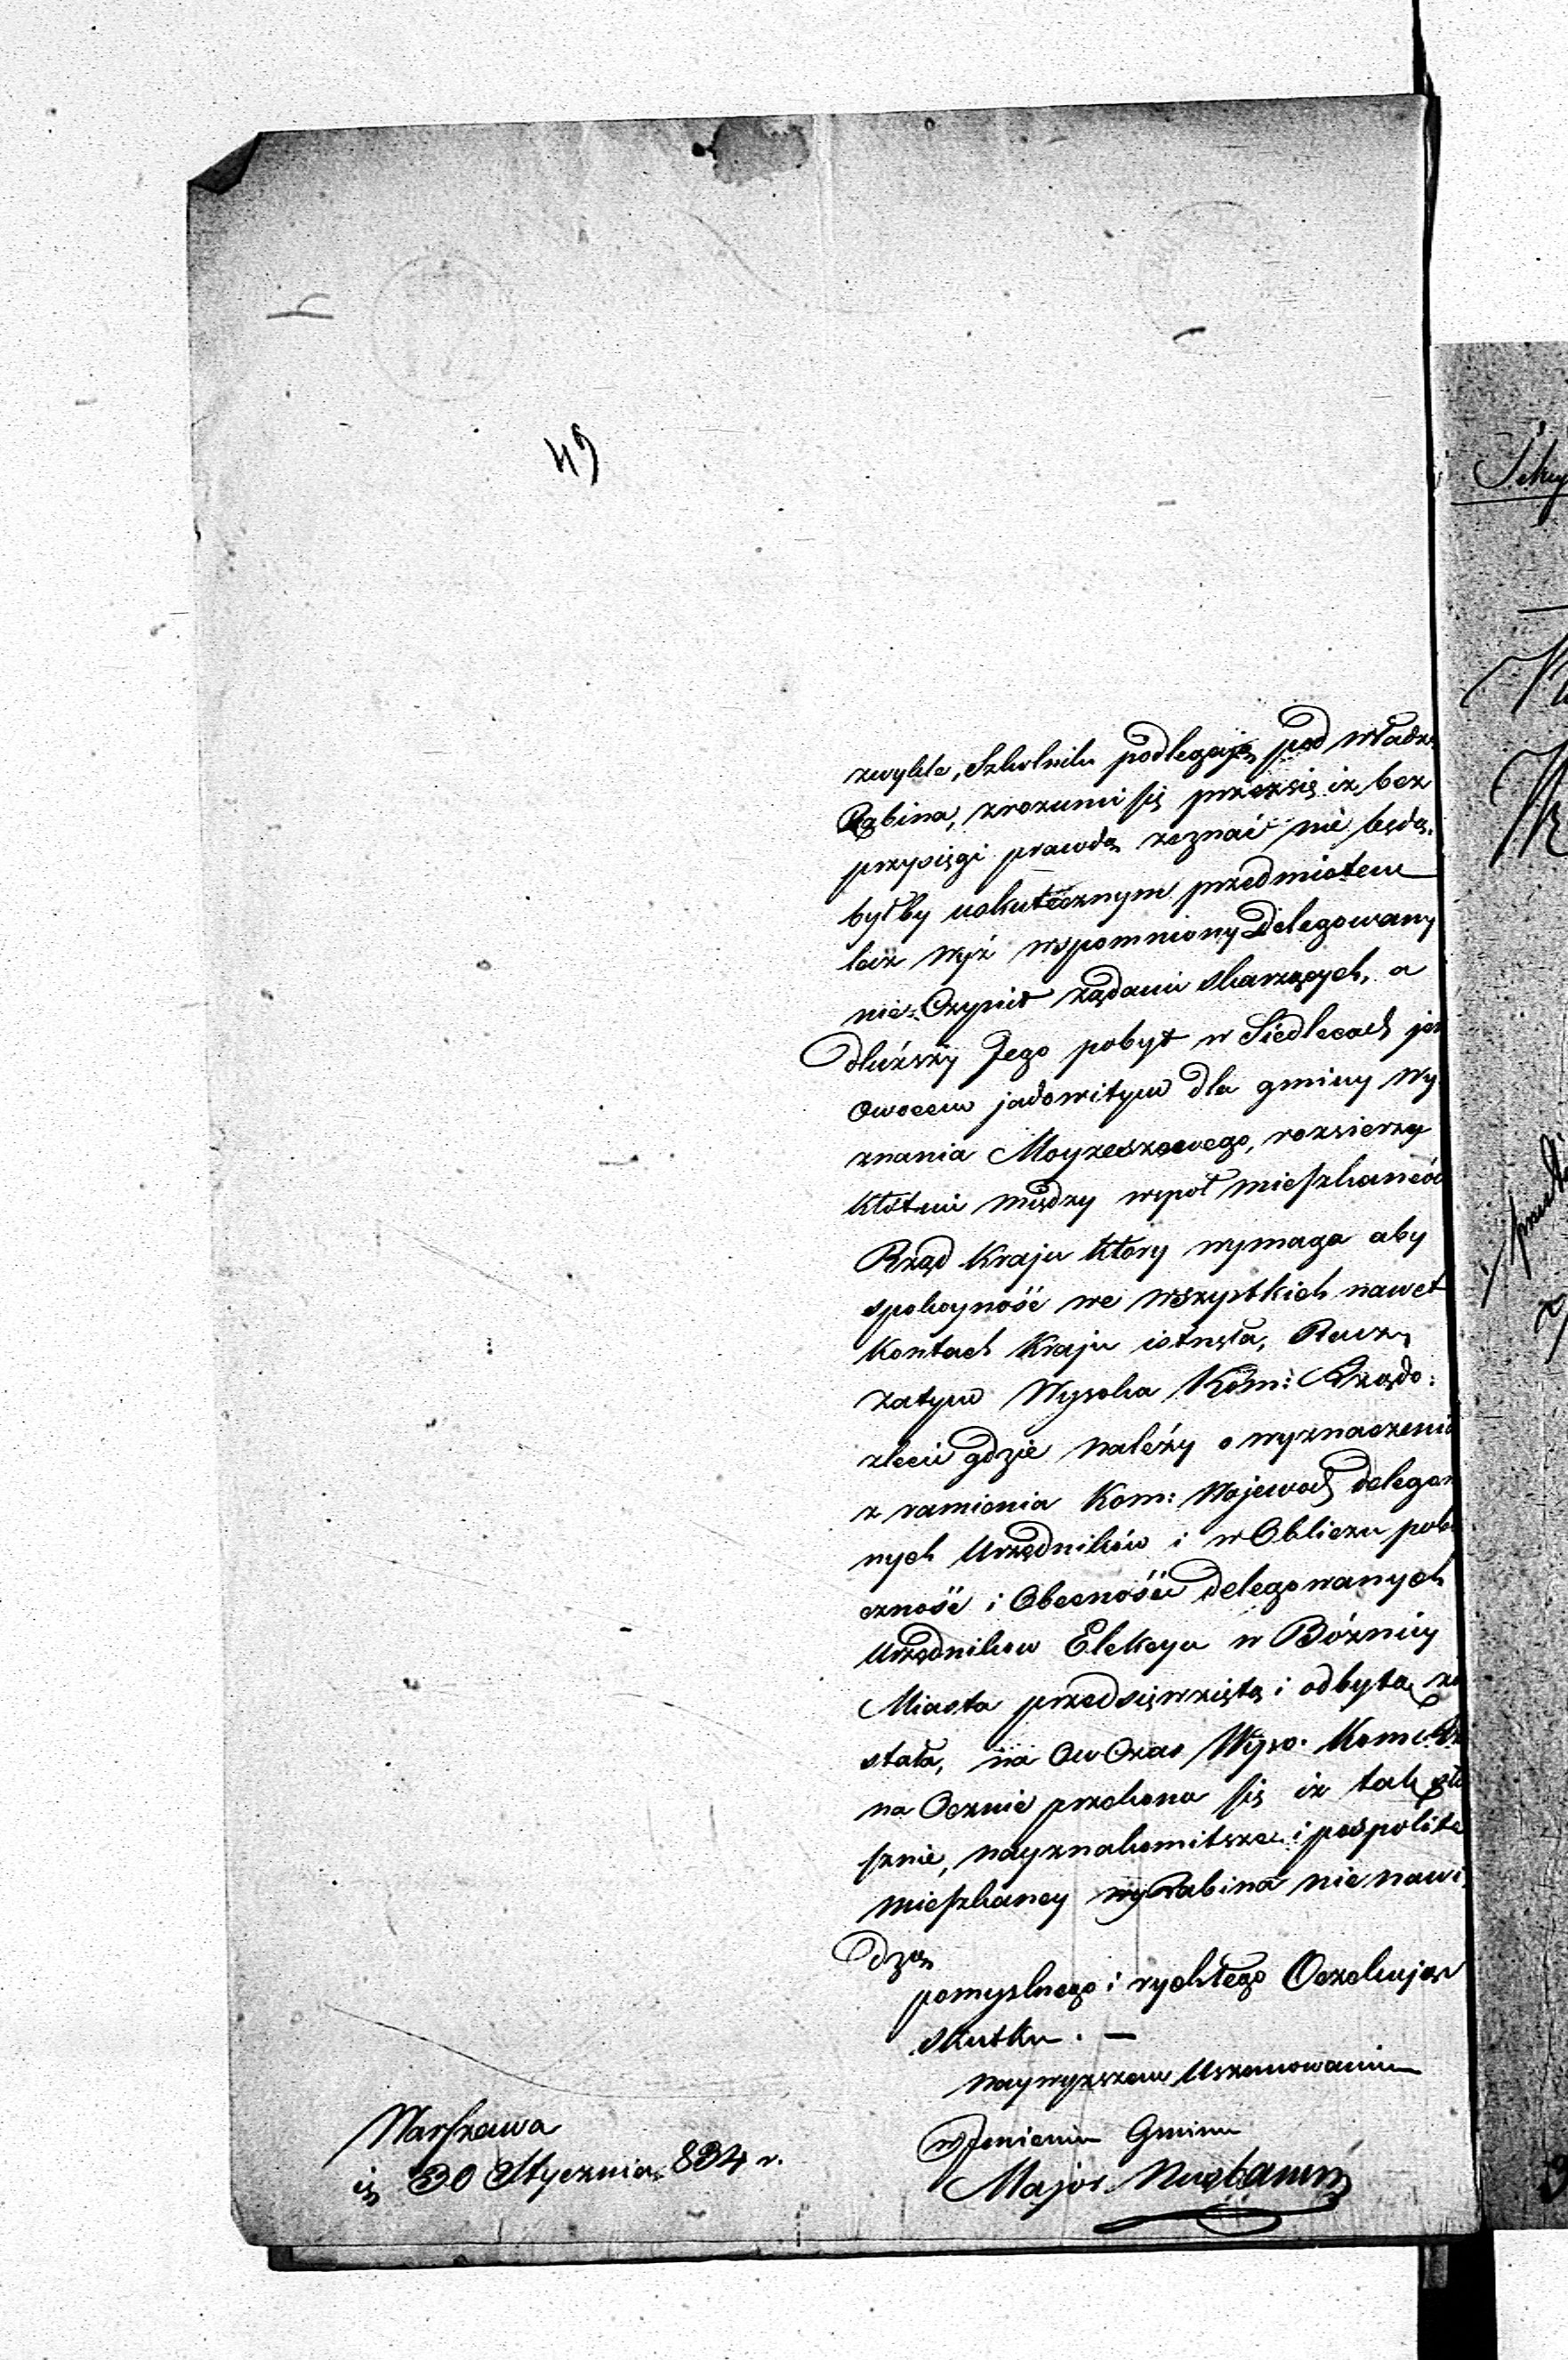 49
zwykle, Szkolniku podlegają pod władzą
Rabina, zrozumi się przezsię iż bez
przysięgi prawdą zeznać nie będą.
byłby uskutecznym przedmiotem
lecz wyż wspomniony Delegowany
nie Czynił rządaniu skarzących, a
dłuższy Jego pobyt w Siedlecach jest
owocem jadowitym dla gminy Wy
znania Moyzeszowego, rozsierzy
kłótni między wspoł mieszkanców
Rząd Kraju który wymaga aby
spokoyność we wszystkich nawet
Kontach Kraju istnęła, Raczy
Zatym Wysoka Kom: Rządo:
zlecić gdzie należy o wyznaczenie
z ramienia Kom: Wojewod delegowa
nych Urzędników i w Obliczu pobli
czność i Obecność delegowanych
Urzędnikow Elekcya w Bóżnicy
Miasta przedsięwziętą i odbytą zo
stała, na Ow Czas Wyso. Kom: Rz
na Ocznie przekona się iż tak
sznie, nayznakomitsze i pospolite
mieszkancy Rabina nie nawi
dzą
pomyslnego i rychłego Oczekując
skutku. —
naywyzszem Uszanowaniem
w Jmieniu Gminu
Major Nusbaum
Warszawa
30 Stycznia 834 r.